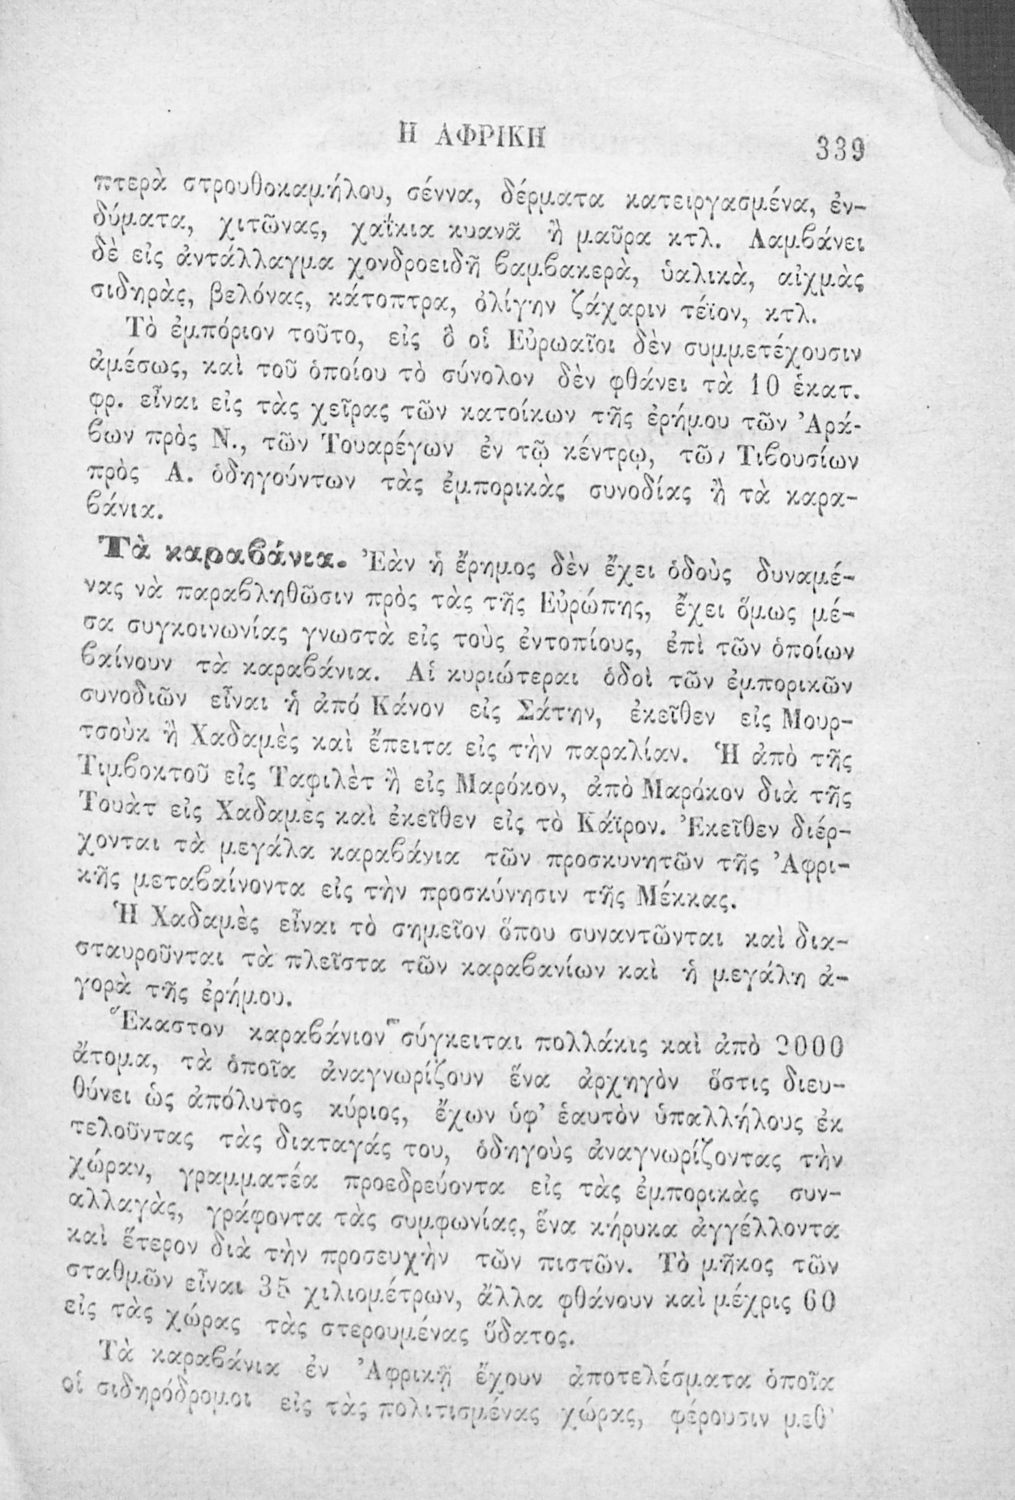 Η ΑΦΡΙΚΗ 339
πτερὰ στρουθοκαμήλου, σέννα, δέρματα κατειργασμένα, ἐν-
δύματα, χιτῶνας, χαΐκια κυανᾶ ἢ μαῦρα κτλ. Λαμβάνει
δὲ εἰς ἀντάλλαγμα χονδροειδῆ βαμβακερὰ, ὑαλικὰ, αἰχμὰς
σιδηρὰς, βελόνας, κάτοπτρα, ὀλίγην ζάχαριν τέϊον, κτλ.
Τὸ ἐμπόριον τοῦτο, εἰς ὃ οἱ Εὐρωαῖοι δὲν συμμετέχουσιν
ἀμέσως, καὶ τοῦ ὁποίου τὸ σύνολον δὲν φθάνει τὰ 10 ἑκατ.
φρ. εἶναι εἰς τὰς χεῖρας τῶν κατοίκων τῆς ἐρήμου τῶν Ἀρά-
βων πρὸς Ν., τῶν Τουαρέγων ἐν τῷ κέντρῳ, τῶν Τιβουσίων
πρὸς Α. ὁδηγούντων τὰς ἐμπορικὰς συνοδίας ἢ τὰ καρα-
βάνια.
Τὰ καραβάνια. Ἐὰν ἡ ἔρημος δὲν ἔχει ὁδοὺς δυναμέ-
νας νὰ παραβληθῶσιν πρὸς τὰς τῆς Εὐρώπης, ἔχει ὅμως μέ-
σα συγκοινωνίας γνωστὰ εἰς τοὺς ἐντοπίους, ἐπὶ τῶν ὁποίων
βαίνουν τὰ καραβάνια. Αἱ κυριώτεραι ὁδοὶ τῶν ἐμπορικῶν
συνοδιῶν εἶναι ἡ ἀπό Κάνον εἰς Σάτην, ἐκεῖθεν εἰς Μουρ-
τσοὺκ ἢ Χαδαμὲς καὶ ἔπειτα εἰς τὴν παραλίαν. Ἡ ἀπὸ τῆς
Τιμβοκτοῦ εἰς Ταφιλὲτ ἢ εἰς Μαρόκον, ἀπὸ Μαρόκον διὰ τῆς
Τουὰτ εἰς Χαδαμὲς καὶ ἐκεῖθεν εἰς τὸ Κάϊρον. Ἐκεῖθεν διέρ-
χονται τὰ μεγάλα καραβάνια τῶν προσκυνητῶν τῆς Ἀφρι-
κῆς μεταβαίνοντα εἰς τὴν προσκύνησιν τῆς Μέκκας.
Ἡ Χαδαμὲς εἶναι τὸ σημεῖον ὅπου συναντῶνται καὶ δια-
σταυροῦνται τὰ πλεῖστα τῶν καραβανίων καὶ ἡ μεγάλη ἀ-
γορὰ τῆς ἐρήμου.
Ἕκαστον καραβάνιον σύγκειται πολλάκις καὶ ἀπὸ 2000
ἄτομα, τὰ ὁποῖα ἀναγνωρίζουν ἕνα ἀρχηγὸν ὅστις διευ-
θύνει ὡς ἀπόλυτος κύριος, ἔχων ὑφ' ἑαυτὸν ὑπαλλήλους ἐκ
τελοῦντας τὰς διαταγάς του, ὁδηγοὺς ἀναγνωρίζοντας τὴν
χώραν, γραμματέα προεδρεύοντα εἰς τὰς ἐμπορικὰς συν-
αλλαγὰς, γράφοντα τὰς συμφωνίας, ἕνα κήρυκα ἀγγέλλοντα
καὶ ἕτερον διὰ τὴν προσευχὴν τῶν πιστῶν. Τὸ μῆκος τῶν
σταθμῶν εἶναι 35 χιλιομέτρων, ἄλλα φθάνουν καὶ μέχρις 60
εἰς τὰς χώρας τὰς στερουμένας ὕδατος.
Τὰ καραβάνια ἐν Ἀφρικῇ ἔχουν ἀποτελέσματα ὁποῖα
οἱ σιδηρόδρομοι εἰς τὰς πολιτισμένας χώρας, φέρουσιν μεθ'